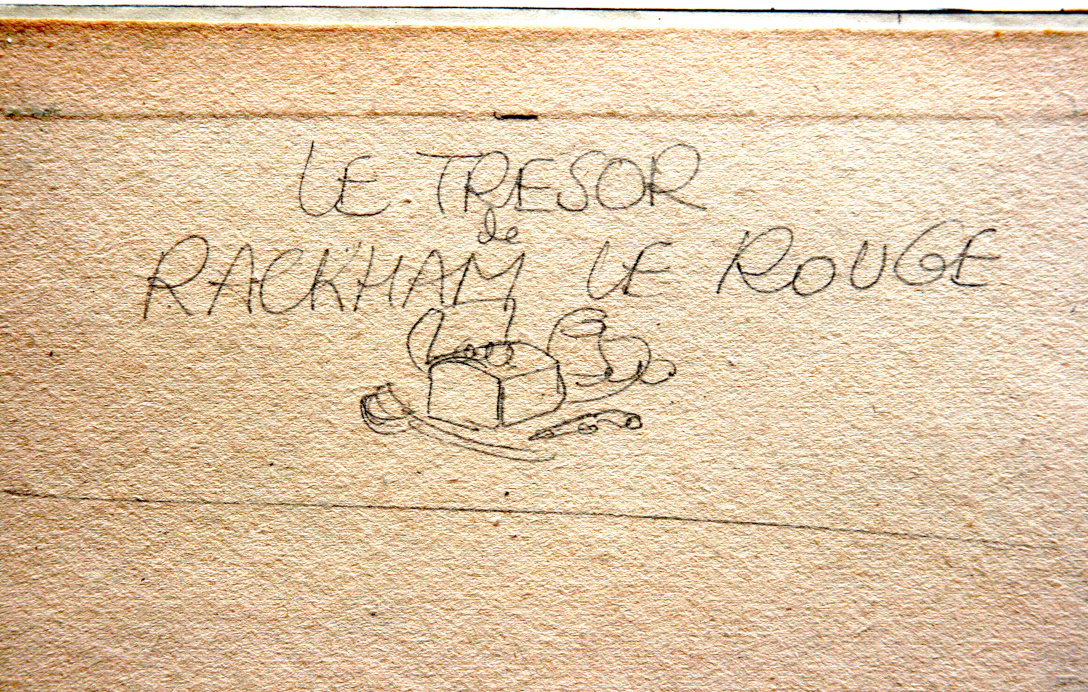 LE TRESOR
de
RACKHAM LE ROUGE